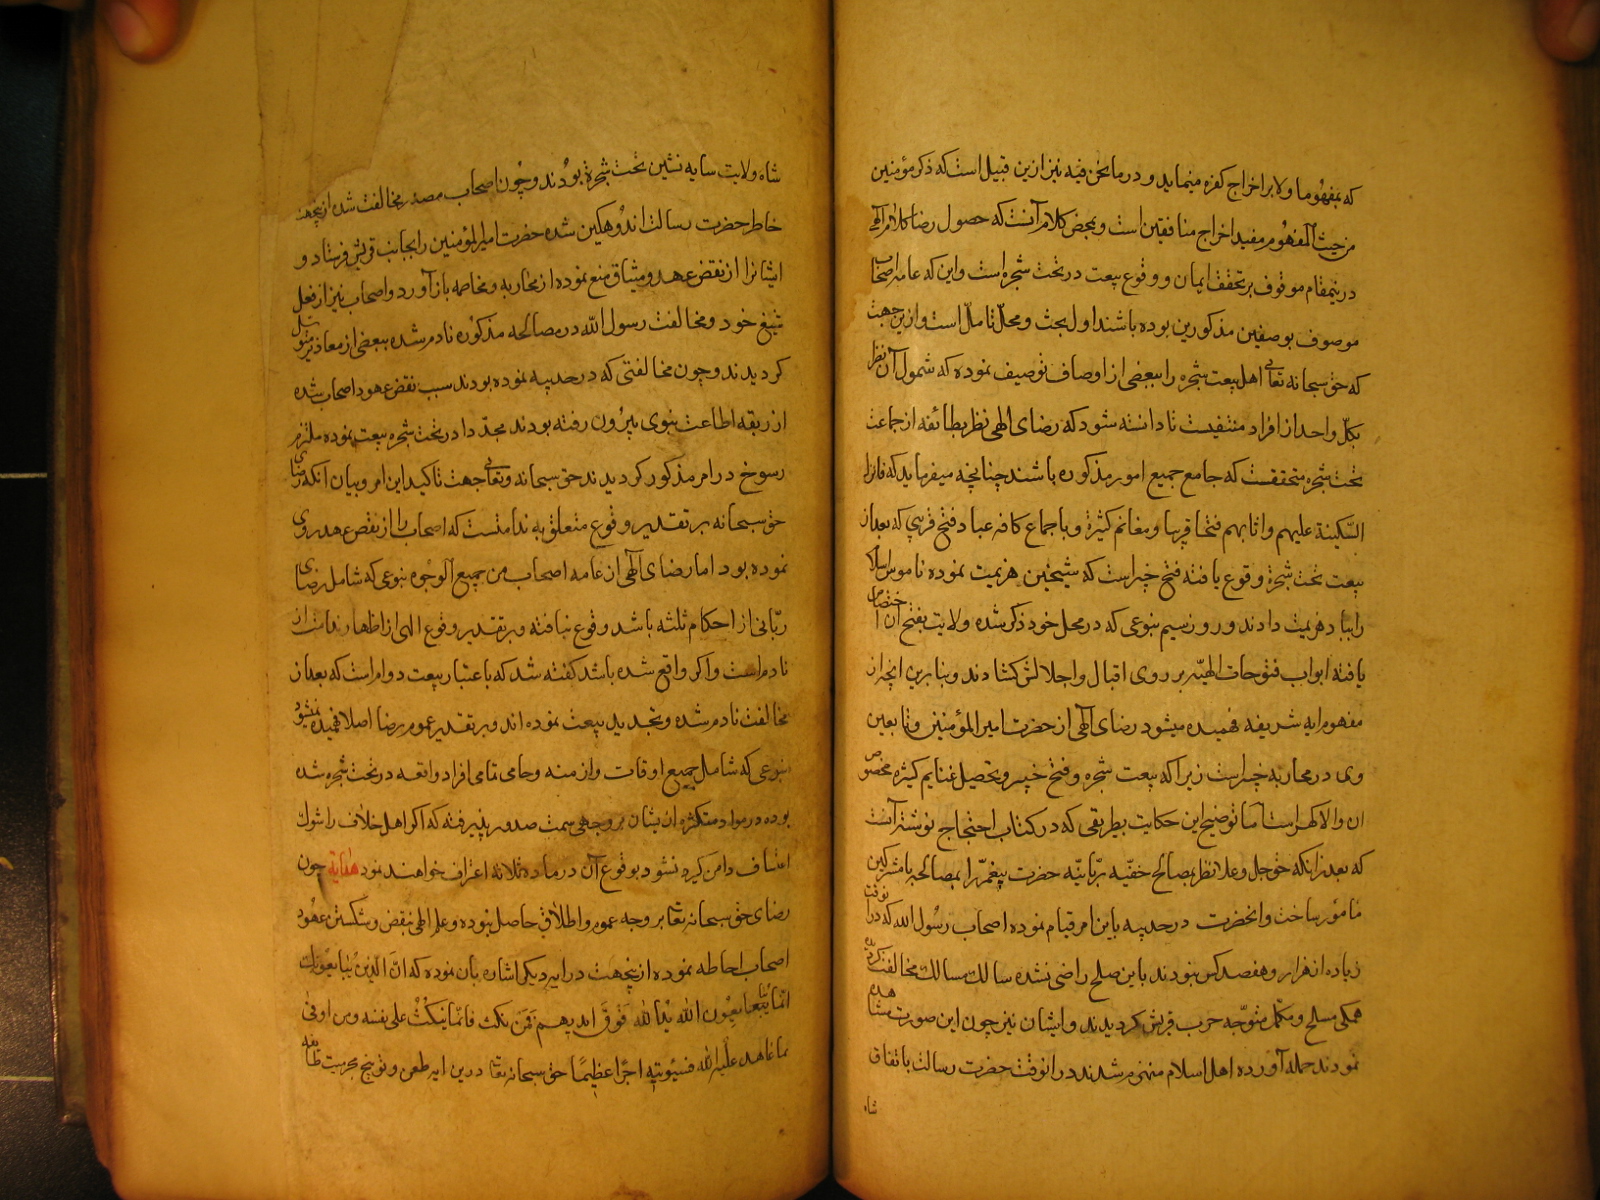 که بمفهوما ولابراخراج کفره مینماید و درمانحن فیه نیز ازین قبیل است که ذکر مؤمنین
من حیث المفهوم مفید اخراج منافقین است و محض کلام آنست که حصول رضا کلام الهی
درینمقام موقوف بر تحقق ایمان و وقوع بیعت در تحت شجره است و این که عامه اصحاب
موصوف بوصفین مذکورین بوده باشند اول بحث و محل تامل است و ازین جهت
که حق سبحانه تعالی اهل بیعت شجره را ببعضی از اوصاف توصیف نموده که شمول آن نظر
بکل واحد از افراد منتفیست تا دانسته شود که رضای الهی نظر بطائفه از جماعت
تحت شجره متحققست که جامع جمیع امور مذکوره باشند چنانچه میفرماید که فانزل
السکینة علیهم واثابهم فتحا قریبا و مغانم کثیرة و باجماع کافه عباد فتح قریبی که بعد از
بیعت تحت شجرة وقوع یافته فتح خیبر است که شیخین هزیمت نموده ناموس اسلام
را بباد هزیمت دادند و روز سیم بنوعی که در محل خود ذکر شده ولایت بفتح آن اختصاص
یافته ابواب فتوحات الهیه بر روی اقبال و اجلالش کشادند و بنا برین آنچه از
مفهوم ایه شریفه فهمیده میشود رضای الهی از حضرت امیر المؤمنین و تابعین
وی در محاربه خیبر است زیرا که بیعت شجره و فتح خیبر و تحصیل غنایم کثیره مخصوص
ان والا کهر است اما توضیح این حکایت بطریقی که در کتاب احتجاج نوشته آنست
که بعد از انکه حق جل و علا نظر بمصالح خفیه ربانیه حضرت پیغمبر را بمصالحه با مشرکین
مامور ساخت و انحضرت در حدیبیه باین امر قیام نموده اصحاب رسول الله که درا نوقت
زیاده از هزار و هفصد کس بودند باین صلح راضی نشده سالک مسالک مخالفت کردیده
همکی مسلح و مکمل متوجه حرب قریش کردیدند و ایشان نیز چون این صورت مشاهده
نمودند حمله آورده اهل اسلام منهزم شدند درانوقت حضرت رسالت باتفاق
شاه
شاه ولایت سایه نشین تحت شجرة بودند و چون اصحاب مصدر مخالفت شده ازینجهت
خاطر حضرت رسالت اندوهکین شده حضرت امیر المؤمنین را بجانب قریش فرستاد و
ایشانرا از نقض عهد و میثاق منع نموده از محاربه و مخاصمه باز آورد و اصحاب نیز از فعل
شنیع خود و مخالفت رسول الله در مصالحه مذکوره نادم شده ببعضی از معاذیر متوسل
کردیدند و چون مخالفتی که در حدیبیه نموده بودند سبب نقض عهود اصحاب شده
از ربقه اطاعت نبوی بیرون رفته بودند مجددا در تحت شجره بیعت نموده ملتزم
رسوخ در امر مذکور کردیدند حق سبحانه و تعالی جهت تاکید این امر و بیان انکه رضای
حق سبحانه بر تقدیر وقوع متعلق به ندامتست که اصحاب را از نقض عهد روی
نموده بود اما رضای الهی از عامه اصحاب من جمیع الوجوه بنوعی که شامل رضای
ربانی از احکام ثلثه باشد وقوع نیافته و بر تقدیر وقوع الهی از اظهار ندامت ان
نادم است و اکر واقع شده باشد کفته شد که باعتبار بیعت دوام است که بعد از
مخالفت نادم شده و تجدید بیعت نموده اند و بر تقدیر عموم رضا اصلا فهمیده نمیشود
بنوعی که شامل جمیع اوقات و ازمنه و حامی تمامی افراد واقعه در تحت شجره شده
بوده در مواد متکثره ازیشان بر وجهی سمت صدور پذیرفته که اکر اهل خلاف را شوک
اعتساف دامن کیر نشود بوقوع آن در ماده ثلاثه اعتراف خواهند نمود هدایة چون
رضای حق سبحانه تعالی بر وجه عموم و اطلاق حاصل نبوده و علم الهی بنقض و شکستن عهود
اصحاب احاطه نموده ازینجهت در ایه دیکر اشاره بآن نموده که ان الذین یبایعونک
انما یبایعون الله یدالله فوق ایدیهم فمن نکث فانما ینکث علی نفسه ومن اوفی
بما عاهد علیه الله فسیؤتیه اجرا عظیما حق سبحانه تعالی درین ایه طعن و توبیخ